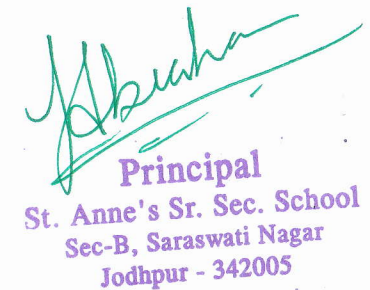 Principal
St. Anne's Sr. Sec. School
Sec-B, Saraswati Nagar
Jodhpur - 342005